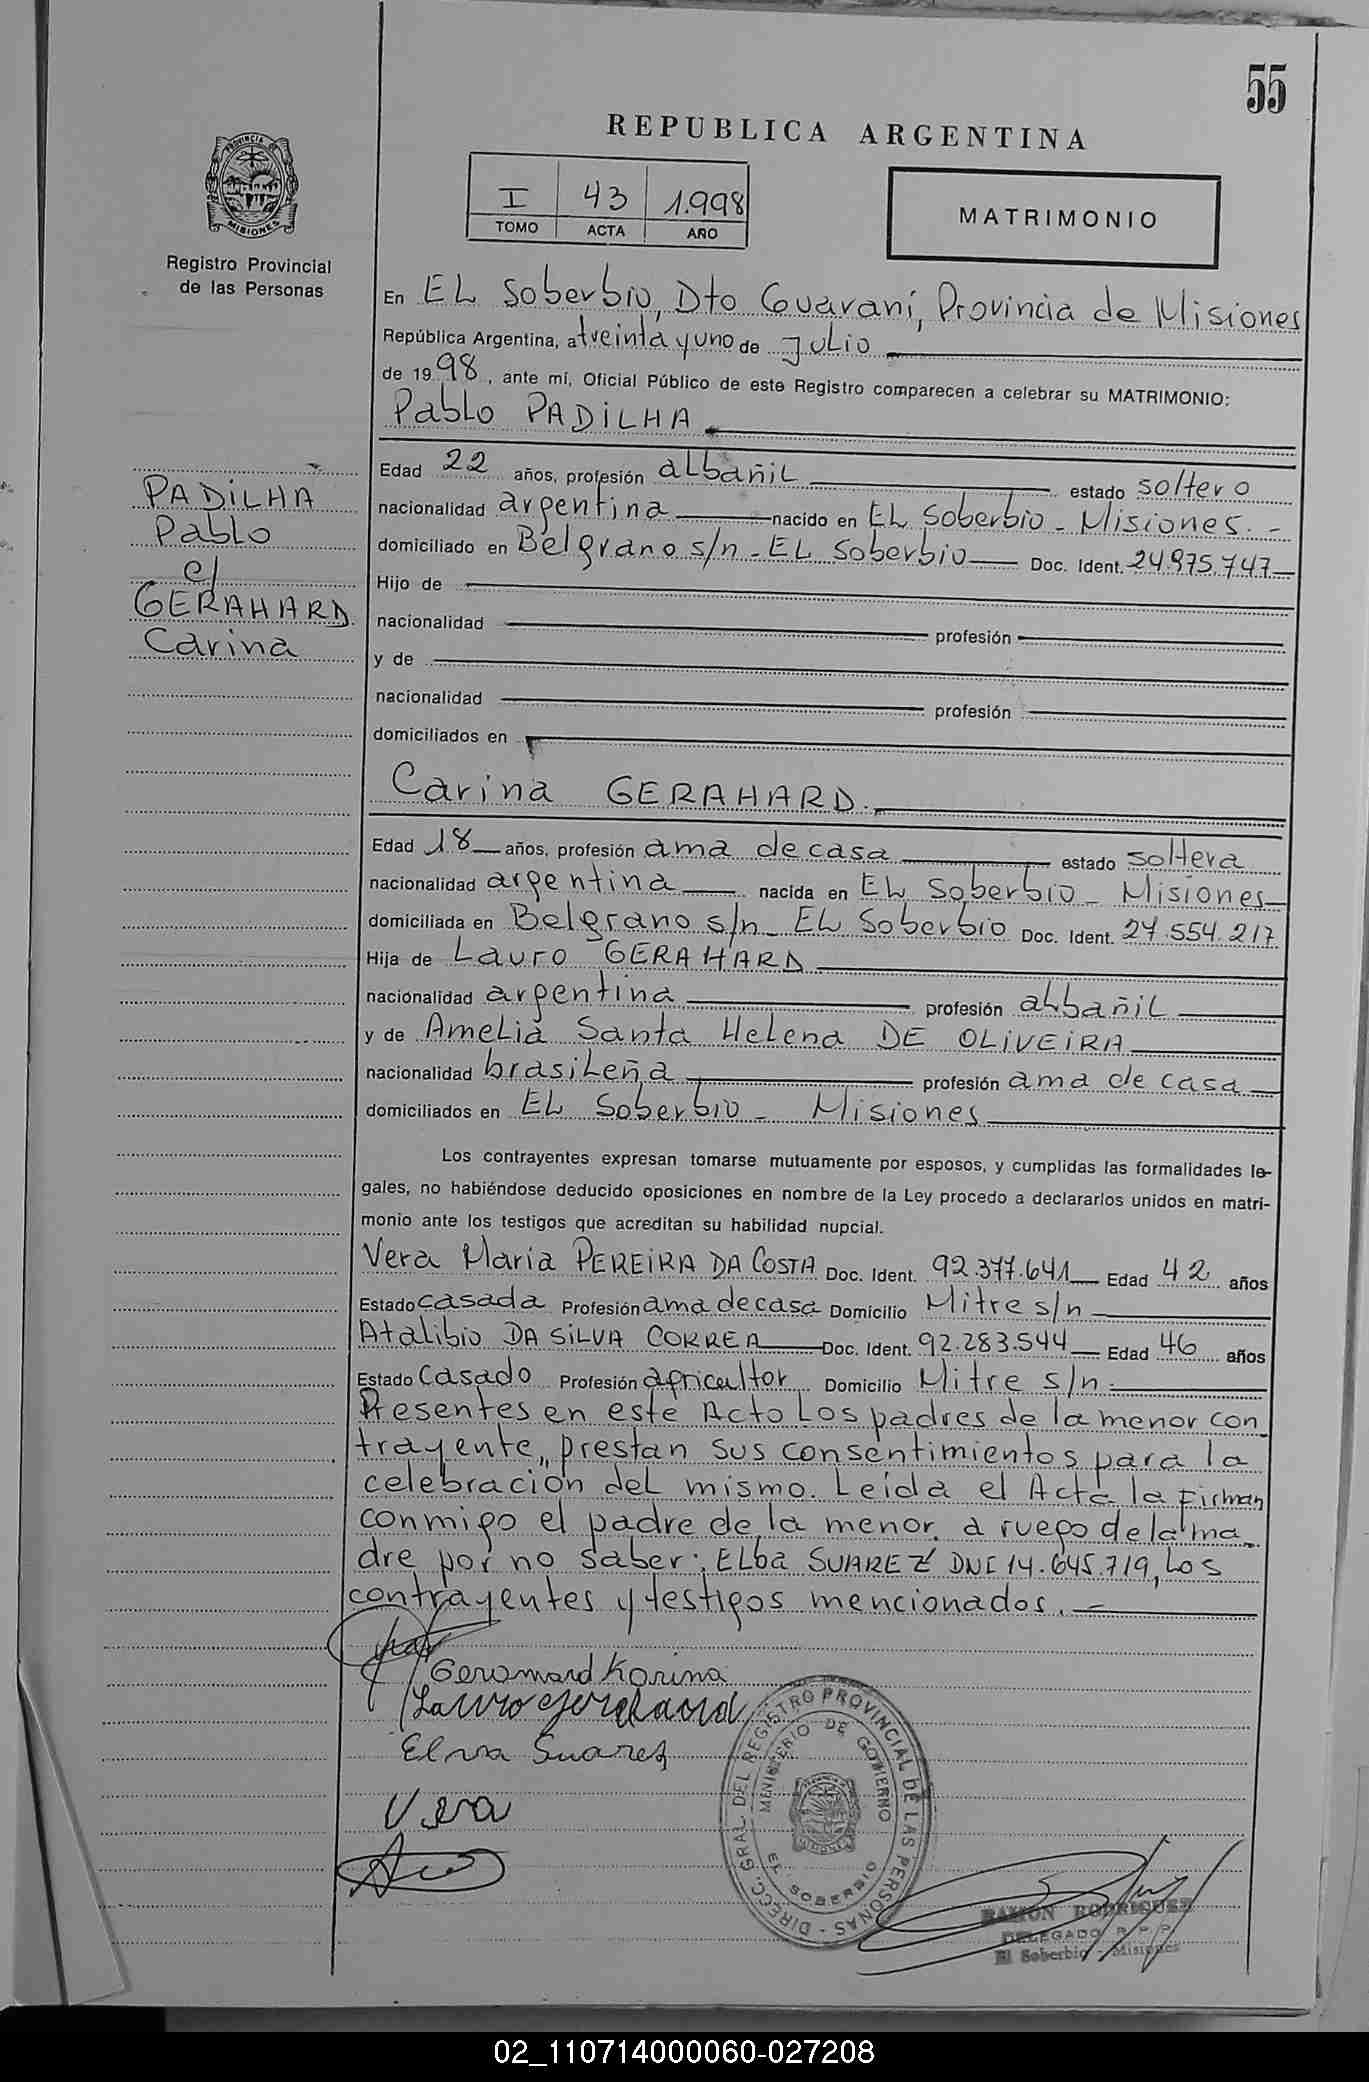 55
REPUBLICA ARGENTINA
PROVINCIA DE
MISIONES
I 43 1.998
TOMO ACTA AÑO
MATRIMONIO
Registro Provincial
de las Personas
En EL Soberbio, Dto Guaraní, Provincia de Misiones
República Argentina, a treinta y uno de Julio
de 1998, ante mí, Oficial Público de este Registro comparecen a celebrar su MATRIMONIO:
Pablo PADILHA
PADILHA
Pablo
c/
GERAHARD
Carina
Edad 22 años, profesión albañil estado soltero
nacionalidad argentina nacido en EL Soberbio - Misiones. -
domiciliado en Belgrano s/n - EL Soberbio Doc. Ident. 24.975.747
Hijo de
nacionalidad profesión
y de
nacionalidad profesión
domiciliados en
Carina GERAHARD.
Edad 18 años, profesión ama de casa estado soltera
nacionalidad argentina nacida en EL Soberbio - Misiones
domiciliada en Belgrano s/n - EL Soberbio Doc. Ident. 27.554.217
Hija de Lauro GERAHARD
nacionalidad argentina profesión albañil
y de Amelia Santa Helena DE OLIVEIRA
nacionalidad brasileña profesión ama de casa
domiciliados en EL Soberbio - Misiones
Los contrayentes expresan tomarse mutuamente por esposos, y cumplidas las formalidades le-
gales, no habiéndose deducido oposiciones en nombre de la Ley procedo a declararlos unidos en matri-
monio ante los testigos que acreditan su habilidad nupcial.
Vera Maria PEREIRA DA COSTA Doc. Ident. 92.377.641 Edad 42 años
Estado casada Profesión ama de casa Domicilio Mitre s/n
Atalibio DA SILVA CORREA Doc. Ident. 92.283.544 Edad 46 años
Estado casado Profesión agricultor Domicilio Mitre s/n.
Presentes en este Acto Los padres de la menor con
trayente, prestan sus consentimientos para la
celebración del mismo. Leída el Acta la Firman
conmigo el padre de la menor, a ruego de la ma_
dre por no saber; ELba SUAREZ DNI 14.645.719, Los
contrayentes y testigos mencionados. -
Geromard Korina
Lauro Gerahard
Elva Suarez
Vera
DIRECC. GRAL. DEL REGISTRO PROVINCIAL DE LAS PERSONAS -
MINISTERIO DE GOBIERNO
EL SOBERBIO
RAMON RODRIGUEZ
DELEGADO R.P.P.
El Soberbio - Misiones
02_110714000060-027208